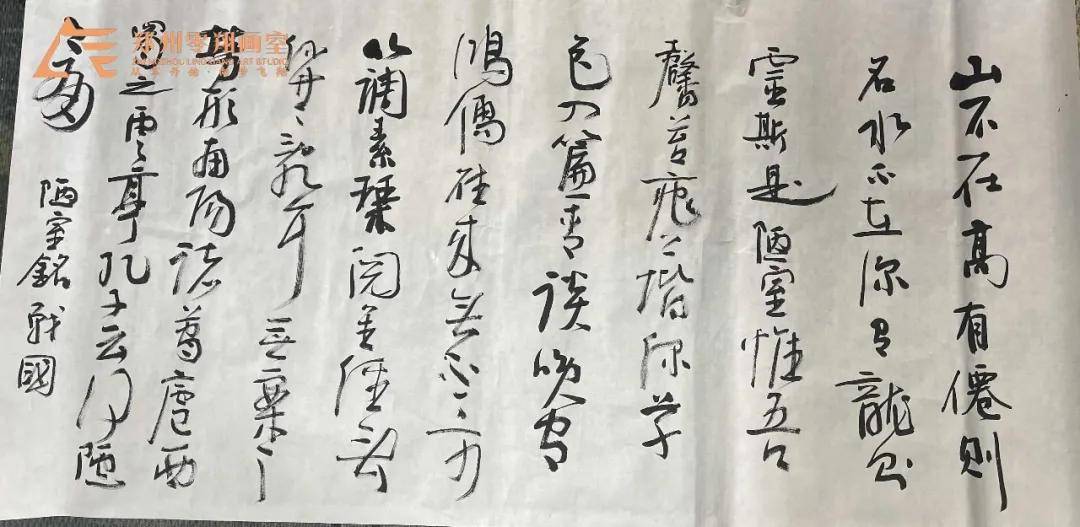 山不在高有僊則
名水不在深有龍則
靈斯是陋室惟吾
馨苔痕上階深草
色入簾青談笑有
鴻儒往來無白丁可
以調素琴閱金經無
亂耳無案
勞形南陽諸葛廬西
蜀之雲亭孔子云何陋
陋室銘 戰國
郑州零翔画室
ZHENGZHOU LINGXIANG ART STUDIO